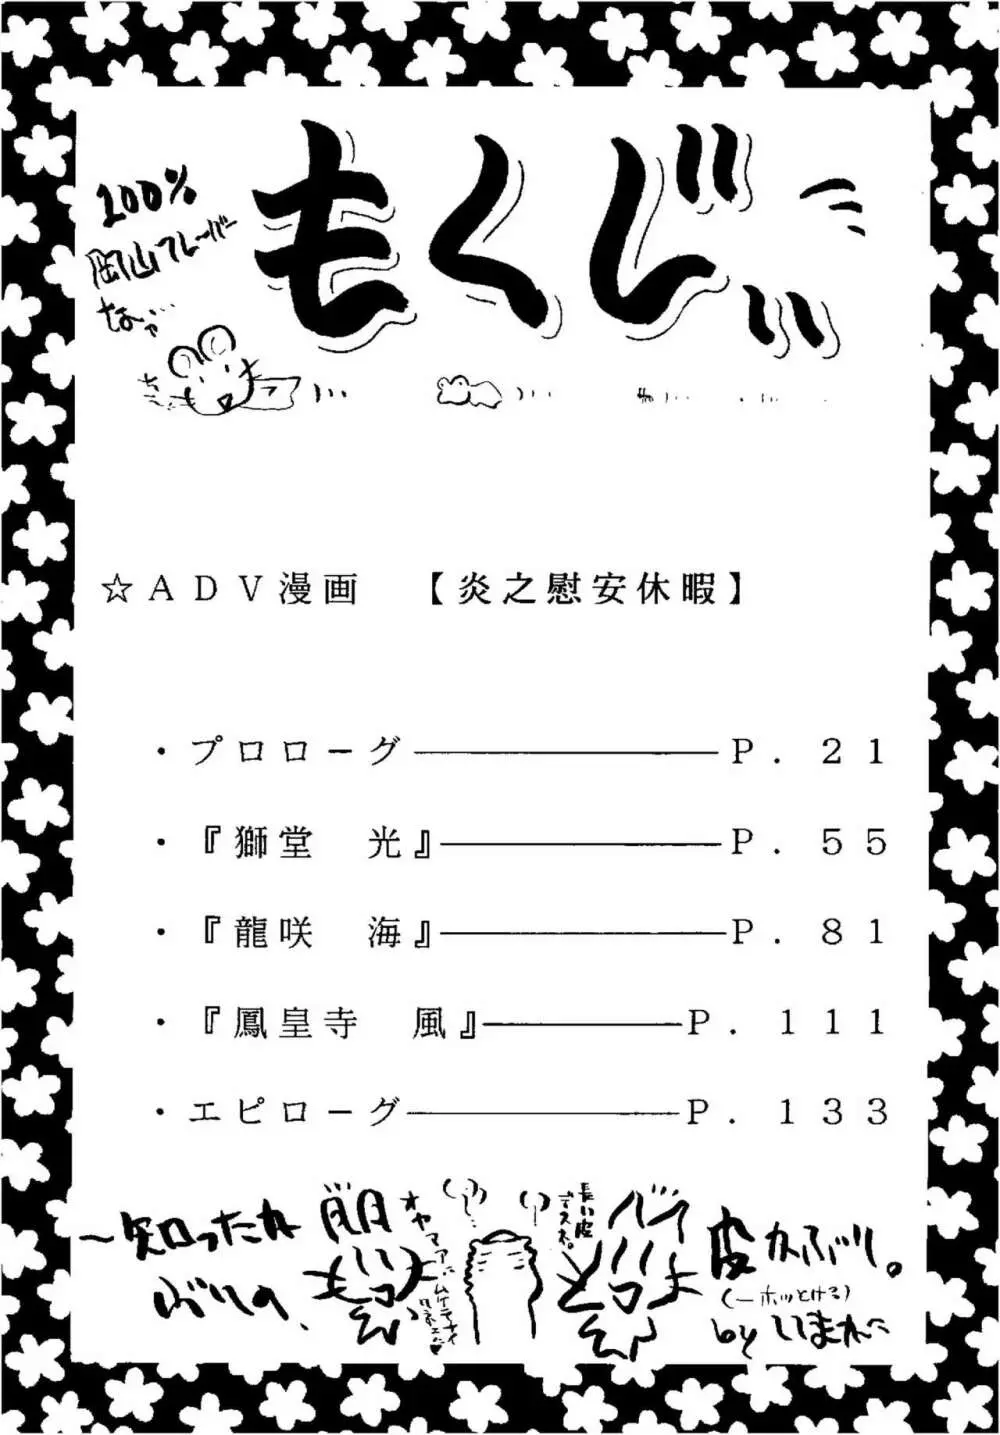 もくじぃ
100%
岡山フレーバー
なァ…
☆ＡＤＶ漫画　【炎之慰安休暇】
・プロローグ―――――――Ｐ．２１
・『獅堂　光』――――――Ｐ．５５
・『龍咲　海』――――――Ｐ．８１
・『鳳皇寺　風』―――――Ｐ．１１１
・エピローグ――――――Ｐ．１３３
〜知ったか
ぶりの、
皮かぶり。
(一ホッとける)
by